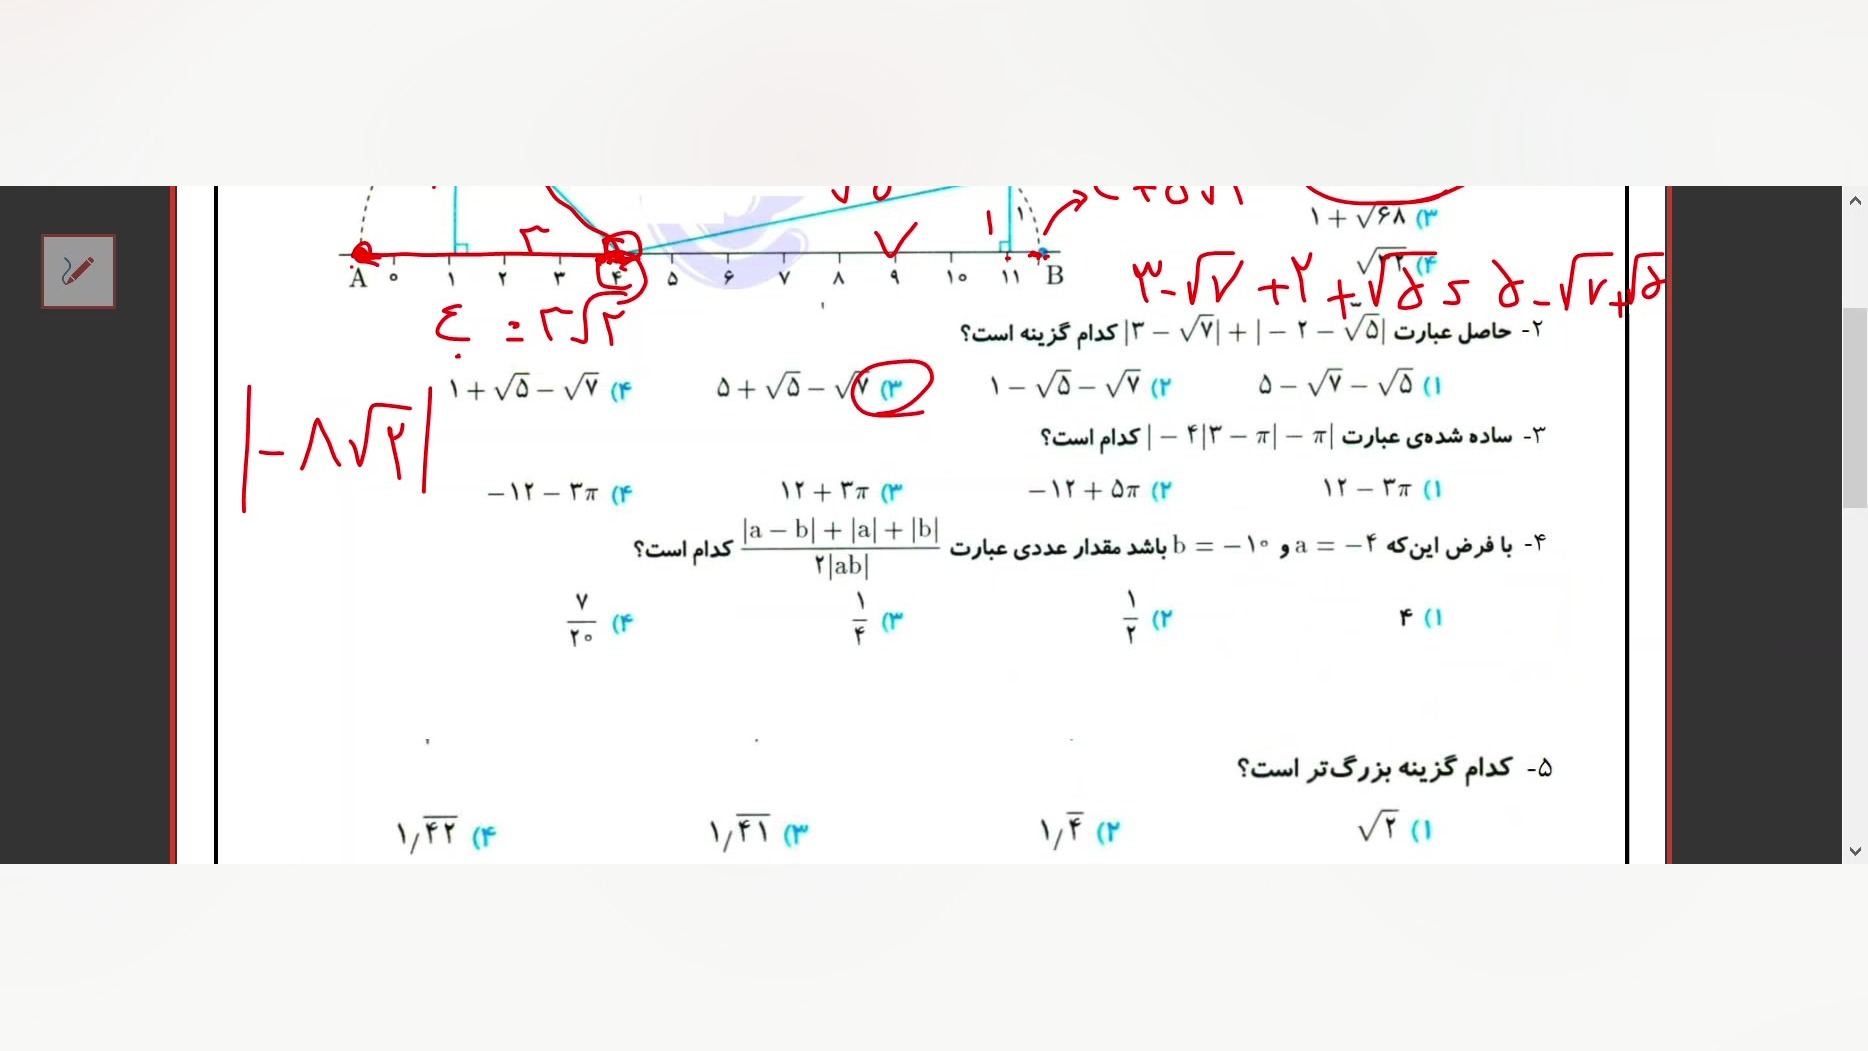 ۳) ۱ + √۶۸
۴)
A ۰ ۱ ۲ ۳ ۴ ۵ ۶ ۷ ۸ ۹ ۱۰ ۱۱ B
۳ ۷ ۱ ۱
۳-√۷ + ۲ + √۵ = ۵-√۷+√۵
۴ - ۳√۲
۲- حاصل عبارت |۳ − √۷| + |− ۲ − √۵| کدام گزینه است؟
۱) ۵ − √۷ − √۵ ۲) ۱ − √۵ − √۷ ۳) ۵ + √۵ − √۷ ۴) ۱ + √۵ − √۷
|-۸√۲|
۳- ساده شده‌ی عبارت |− ۴|۳ − π| − π| کدام است؟
۱) ۱۲ − ۳π ۲) −۱۲ + ۵π ۳) ۱۲ + ۳π ۴) −۱۲ − ۳π
۴- با فرض این‌که a = −۴ و b = −۱۰ باشد مقدار عددی عبارت (|a − b| + |a| + |b|)/(۲|ab|) کدام است؟
۱) ۴ ۲) ۱/۲ ۳) ۱/۴ ۴) ۷/۲۰
۵- کدام گزینه بزرگ‌تر است؟
۱) √۲ ۲) ۱/۴̅ ۳) ۱/۴̅۱̅ ۴) ۱/۴̅۲̅